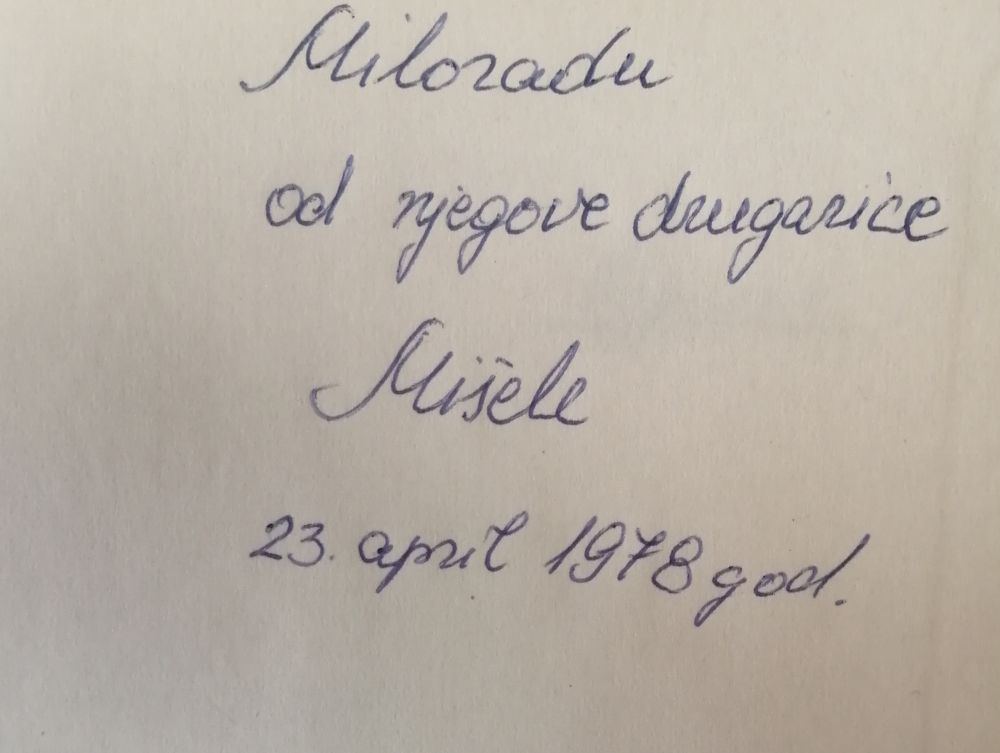 Miloradu
od njegove drugarice
Mišele
23. april 1978 god.